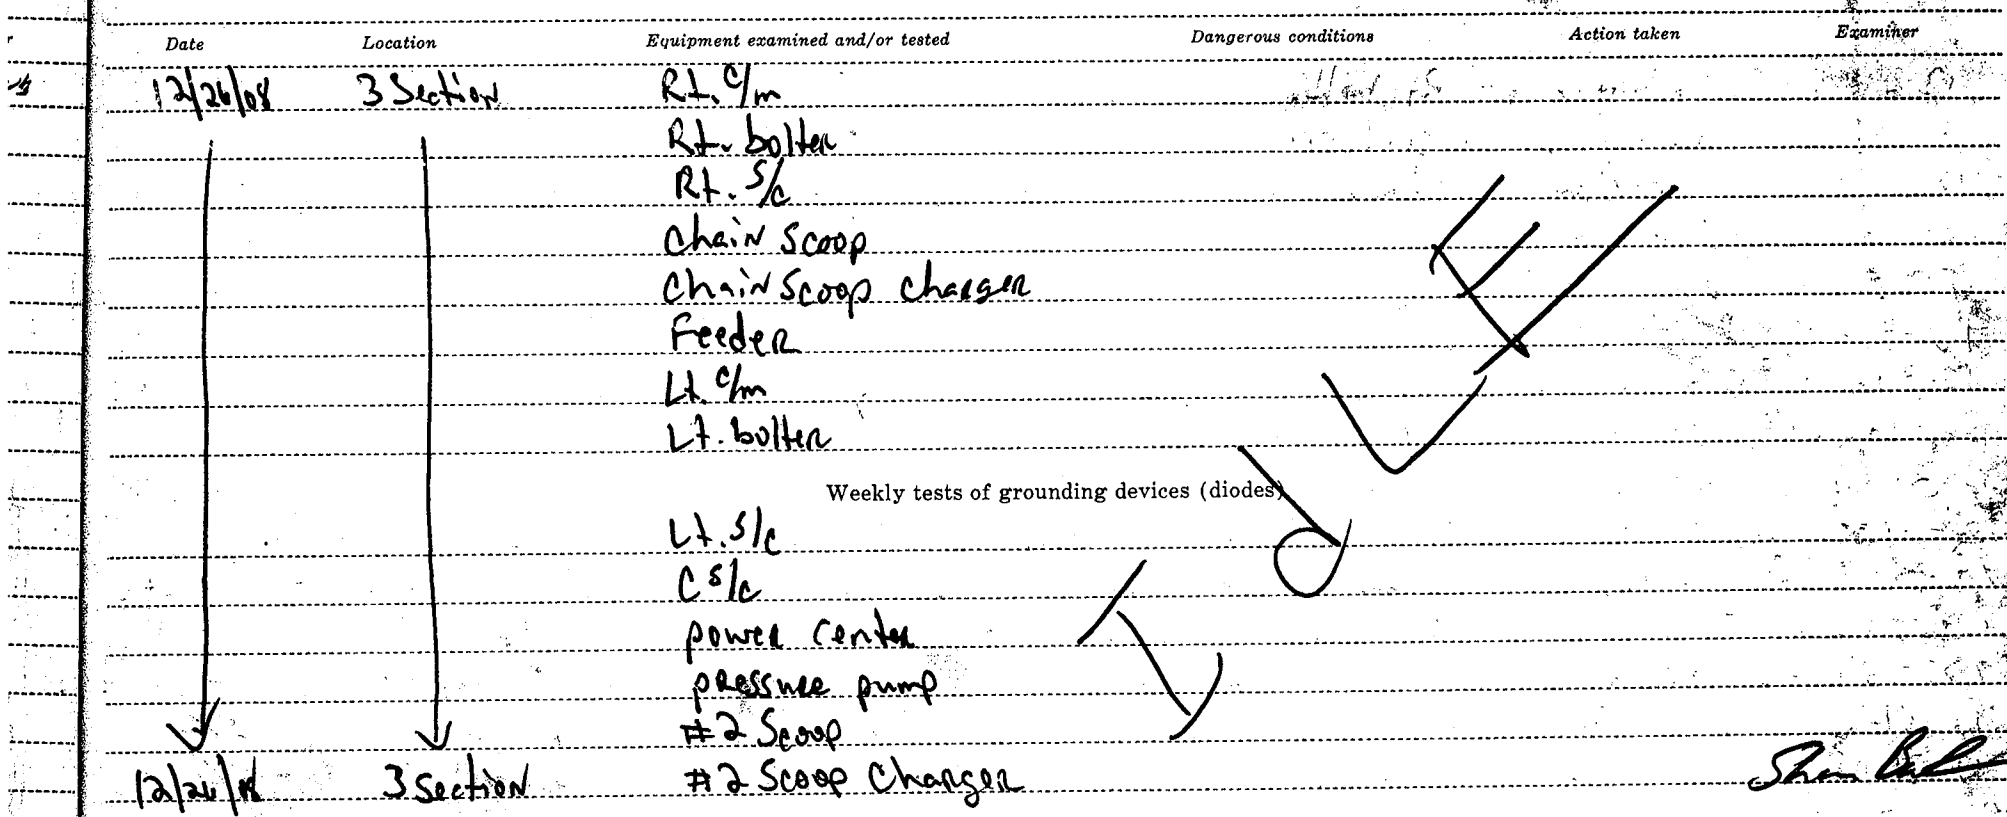 Date Location Equipment examined and/or tested Dangerous conditions Action taken Examiner
12/26/08 3 Section Rt. c/m
Rt. bolter
Rt. s/c
Chain Scoop
Chain Scoop charger
Feeder
Lt. c/m
Lt. bolter
Weekly tests of grounding devices (diodes)
Lt. s/c
C s/c
power center
pressure pump
#2 Scoop
12/26/08 3 Section #2 Scoop Charger